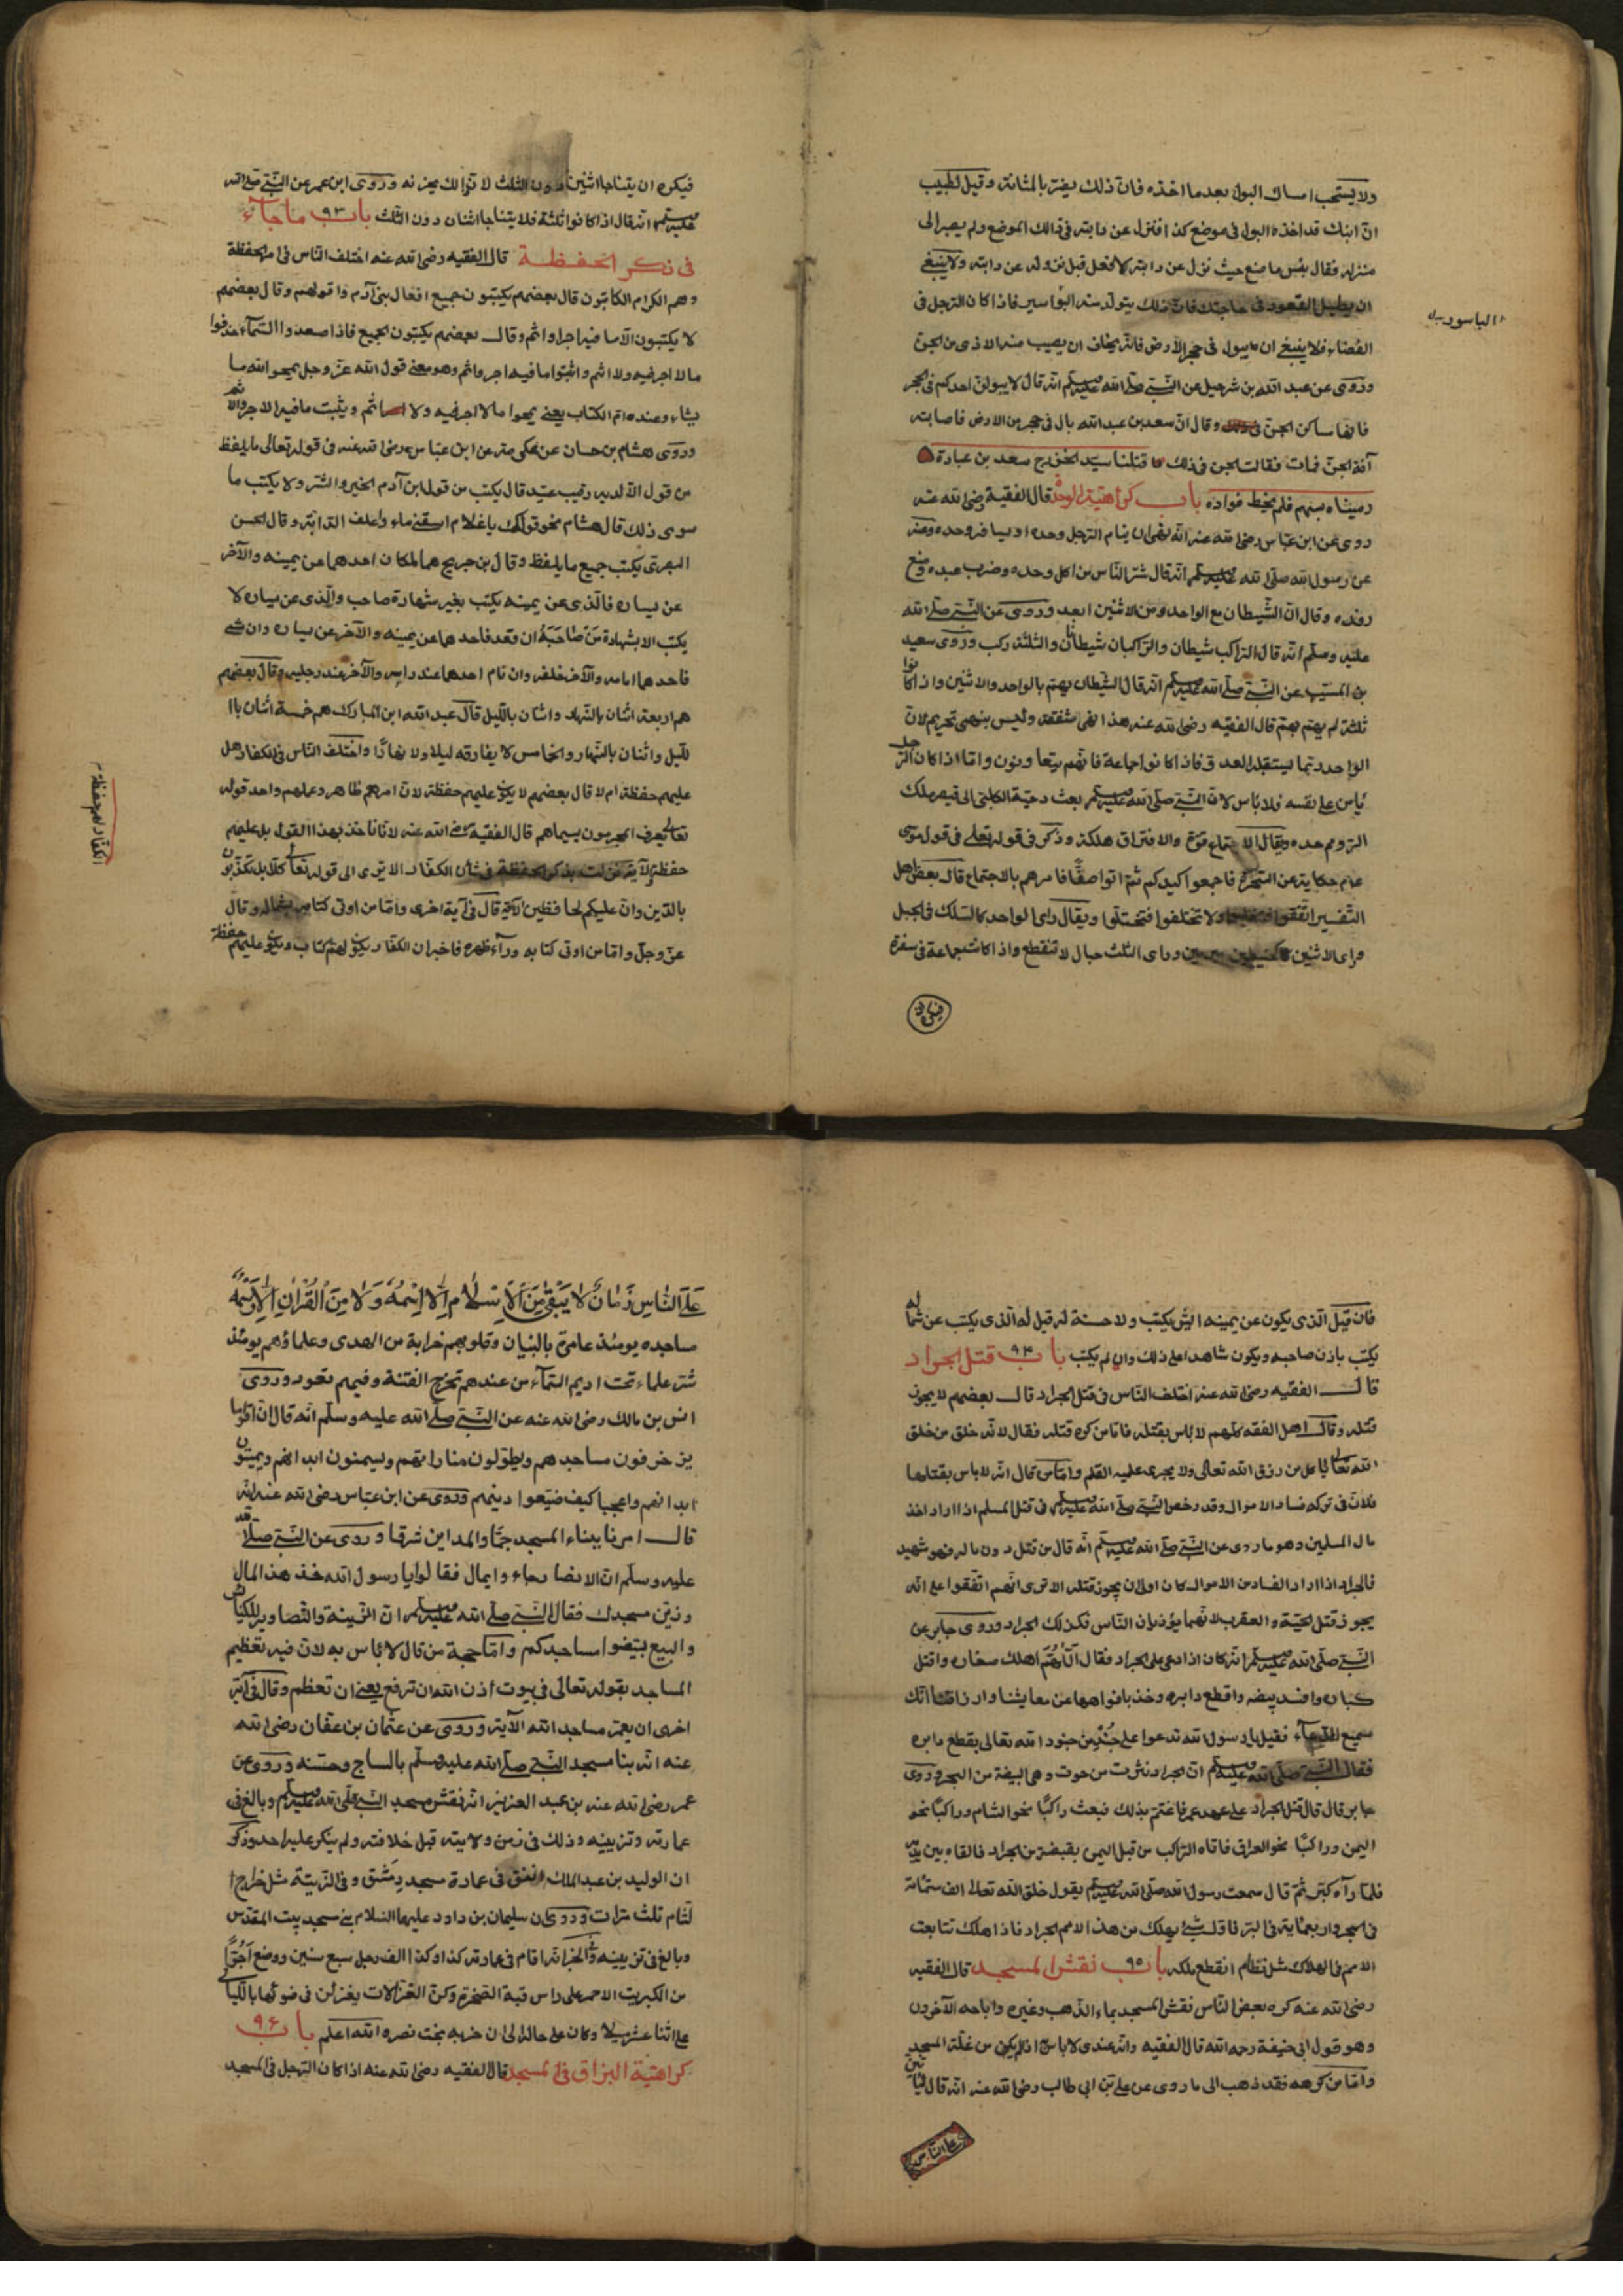 ولا يستحب امساك البول بعدما اخذه فان ذلك يضر بالمثانة وقيل لطبيب
ان ابنك قد اخذه البول فى موضع كذا فنزل عن دابته فى ذالك الموضع ولم يصبر الى
منزله فقال بئس ما صنع حيث نزل عن دابته لا فعل قبل نزوله عن دابته ولا ينبغى
ان يطيل القعود فى حاجتك فان ذلك يتولد منه البواسير فاذا كان الرجل فى
الباسور
الفضاء فلا ينبغى ان يبول فى حجر الأرض فانه يخاف ان يصيب منه الاذى من الجن
وروى عن عبد الله بن شرحيل عن النبى صلى الله عليه وسلم انه قال لا يبولن احدكم فى الحجر
فانها مساكن الجن وقال ان سعد بن عبد الله بال فى حجر من الارض فاصابته
آفة الجن فمات فقالت الجن فى ذلك قتلنا سيد الخزرج سعد بن عبادة
رميناه بسهم فلم يخط فواده باب كراهية الوحدة قال الفقيه رضى الله عنه
روى عن ابن عباس رضى الله عنه انه نهى ان ينام الرجل وحده او يسافر وحده وعنه
عن رسول الله صلى الله عليه وسلم انه قال شر الناس من اكل وحده وضرب عبده ومنع
رفده وقال ان الشيطان مع الواحد ومن الاثنين ابعد وروى عن النبى صلى الله
عليه وسلم انه قال الراكب شيطان والراكبان شيطانان والثلثة ركب وروى سعيد
بن المسيب عن النبى صلى الله عليه وسلم انه قال الشيطان يهتم بالواحد والاثنين واذا كانوا
ثلثة لم يهتم بهم قال الفقيه رضى الله عنه هذا النهى شفقة وليس بنهى تحريم لان
الواحد ربما يستقبله العدو فاذا كانوا جماعة فانهم يتعاونون واما اذا كان الرجل
يأمن على نفسه فلا بأس لان النبى صلى الله عليه وسلم بعث دحية الكلبى الى قيصر ملك
الروم وحده ويقال الاجتماع قوة والافتراق هلكة وذكر فى قوله تعالى فى قول موسى
عم حكاية عن السحرة فاجمعوا كيدكم ثم اتوا صفا فامرهم بالاجتماع قال بعض اهل
التفسير اتفقوا ولا تختلفوا فتختلوا ويقال راى الواحد كالسلك فى الحبل
وراى الاثنين كالخيطين وراى الثلث حبال لا تنقطع واذا كانت جماعة فى سفرة
فيكره
فيكره ان يتناجا اثنين دون الثلث لا نزالك يحزنه وروى ابن عمر عن النبى صلى الله
عليه وسلم انه قال اذا كانوا ثلثة فلا يتناجا اثنان دون الثلث باب ٩٣ ما جاء
فى ذكر الحفظة قال الفقيه رضى الله عنه اختلف الناس فى امر الحفظة
وهم الكرام الكاتبون قال بعضهم يكتبون جميع افعال بنى آدم واقوالهم وقال بعضهم
لا يكتبون الا ما فيه اجرا واثم وقال بعضهم يكتبون الجميع فاذا صعدوا السماء حذفوا
ما لا اجر فيه ولا اثم واثبتوا ما فيه اجر واثم وهو معنى قول الله عز وجل يمحوا الله ما
يشاء وعنده ام الكتاب يعنى يمحوا ما لا اجر فيه ولا اثم ويثبت ما فيه الاجر والاثم
وروى هشام بن حسان عن عكرمة عن ابن عباس رضى الله عنه فى قوله تعالى ما يلفظ
من قول الا لديه رقيب عتيد قال يكتب من قول ابن آدم الخير والشر ولا يكتب ما
سوى ذلك قال هشام نحو قولك يا غلام اسقنى ماء واعلف الدابة وقال الحسن
البصرى يكتب جميع ما يلفظ وقال بن جريج هما الملكان احدهما عن يمينه والآخر
عن يساره فالذى عن يمينه يكتب بغير شهادة صاحب والذى عن يساره لا
يكتب الا بشهادة من صاحبه ان قعد فاحدهما عن يمينه والآخر عن يساره وان مشى
فاحدهما امامه والآخر خلفه وان نام احدهما عند راسه والآخر عند رجليه وقال بعضهم
هم اربعة اثنان بالنهار واثنان بالليل قال عبد الله ابن المبارك هم خمسة اثنان باا
لليل واثنان بالنهار والخامس لا يفارقه ليلا ولا نهارا واختلف الناس فى الكفار هل
عليهم حفظة ام لا قال بعضهم لا يكون عليهم حفظة لان امرهم ظاهر وعملهم واحد قوله
الكفار لهم حفظة
تعالى يعرف المجرمون بسيماهم قال الفقيه رضى الله عنه لانانا خذ بهذا القول بل عليهم
حفظة بذكر الحفظة فى شأن الكفار الا ترى الى قوله تعالى كلا بل تكذبون
بالدين وان عليكم لحافظين الآية قال فى آية اخرى واما من اوتى كتابه بشماله وقال
عز وجل واما من اوتى كتابه ورآء ظهره فاخبر ان الكفار يكون لهم كتاب ويكون عليهم حفظة
فان قيل الذى يكون عن يمينه ايش يكتب ولا حسنة له قيل له الذى يكتب عن شماله
يكتب باذن صاحبه ويكون شاهدا على ذلك وان لم يكتب باب ٩٤ قتل الجراد
قال الفقيه رضى الله عنه اختلف الناس فى قتل الجراد قال بعضهم لا يجوز
قتله وقال اهل الفقه كلهم لا بأس بقتله فاما من كره قتله فقال لانه خلق من خلق
الله تعالى ياكل من رزق الله تعالى ولا يجرى عليه القلم واما من قال انه لا بأس بقتلها
فلان فى تركه فساد الاموال وقد رخص النبى صلى الله عليه وسلم فى قتل المسلم اذا اراد اخذ
مال المسلمين وهو ما روى عن النبى صلى الله عليه وسلم انه قال من قتل دون ماله فهو شهيد
فالجراد اذا اراد الفساد من الاموال كان اولى ان يجوز قتله الا ترى انهم اتفقوا على انه
يجوز قتل الحية والعقرب لانهما يؤذيان الناس فكذلك الجراد وروى جابر عن
النبى صلى الله عليه وسلم انه كان اذا دعى على الجراد فقال اللهم اهلك صغاره واقتل
كباره وافسد بيضه واقطع دابره وخذ بافواهها عن معايشنا وارزاقنا انك
سميع الدعاء فقيل يا رسول الله تدعوا على جند من جنود الله تعالى بقطع دابره
فقال النبى صلى الله عليه وسلم ان الجراد نثرت من حوت وهى البيضة من البحر وروى
جابر قال قال قتل الجراد على عهد عمر فاغتم بذلك فبعث راكبا نحو الشام وراكبا نحو
اليمن وراكبا نحو العراق فاتاه الراكب من قبل اليمن بقبضة من الجراد فالقاه بين يديه
فلما رآه كبر ثم قال سمعت رسول الله صلى الله عليه وسلم يقول خلق الله تعالى الف ستمائة
فى البحر واربعمائة فى البر فاول شئ يهلك من هذا الامم الجراد فاذا هلك تتابعت
الامم فى الهلاك مثل نظام انقطع سلكه باب ٩٥ نقش المسجد قال الفقيه
رضى الله عنه كره بعض الناس نقش المسجد بماء الذهب وغيره واباحه الآخرون
وهو قول ابى حنيفة رحمه الله قال الفقيه وانه عندى لا بأس اذا لم يكن من غلة المسجد
واما من كرهه فقد ذهب الى ما روى عن على بن ابى طالب رضى الله عنه انه قال ليأتين
على الناس
على الناس زمان لا يبقى من الاسلام الا اسمه ولا من القرآن الا رسمه
مساجده يومئذ عامرة بالبنيان وقلوبهم خرابة من الهدى وعلماؤهم يومئذ
شر علماء تحت اديم السماء من عندهم تخرج الفتنة وفيهم تعود وروى
انس بن مالك رضى الله عنه عن النبى صلى الله عليه وسلم انه قال ان اقواما
يزخرفون مساجدهم ويطولون مناراتهم ويسمنون ابدانهم ويميتون
ابدانهم واعجبا كيف ضيعوا دينهم وروى عن ابن عباس رضى الله عنه انه
قال امرنا ببناء المسجد جما والمداين شرفا وروى عن النبى صلى الله
عليه وسلم ان الانصار جاء وابمال فقالوا يا رسول الله خذ هذا المال
وزين مسجدك فقال النبى صلى الله عليه وسلم ان الزينة والتصاوير للكنائس
والبيع بيضوا مساجدكم واما حجة من قال لا بأس به لان فيه تعظيم
المساجد بقوله تعالى فى بيوت اذن الله ان ترفع يعنى ان تعظم وقال فى آية
اخرى ان يعمر مساجد الله الآية وروى عن عثمان بن عفان رضى الله
عنه انه بنا مسجد النبى صلى الله عليه وسلم بالساج وحسنه وروى عن
عمر رضى الله عنه بن عبد العزيز انه نقش مسجد النبى صلى الله عليه وسلم وبالغ فى
عمارته وتزيينه وذلك فى زمن ولايته قبل خلافته ولم ينكر عليه احد وذكر
ان الوليد بن عبد الملك انفق فى عمارة مسجد دمشق وفى الزينة مثل خراج ا
لشام ثلث مرات وروى ان سليمان بن داود عليهما السلام بنى مسجد بيت المقدس
وبالغ فى تزيينه انه اقام فى عمارته كذا وكذا الف رجل سبع سنين ووضع
من الكبريت الاحمر على راس قبة الصخرة وكن الغزالات يغزلن فى ضوئها بالليالى
على اثنا عشر ميلا وكان على حاله الى ان خربه بخت نصر والله اعلم باب ٩٦
كراهية البزاق فى المسجد قال الفقيه رضى الله عنه اذا كان الرجل فى المسجد